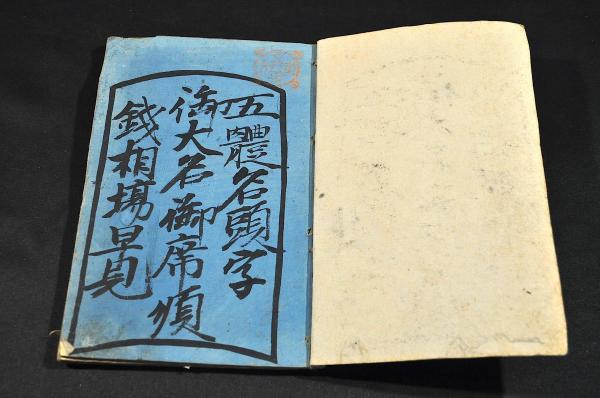 五體名頭字
諸大名御席順
錢相場早見